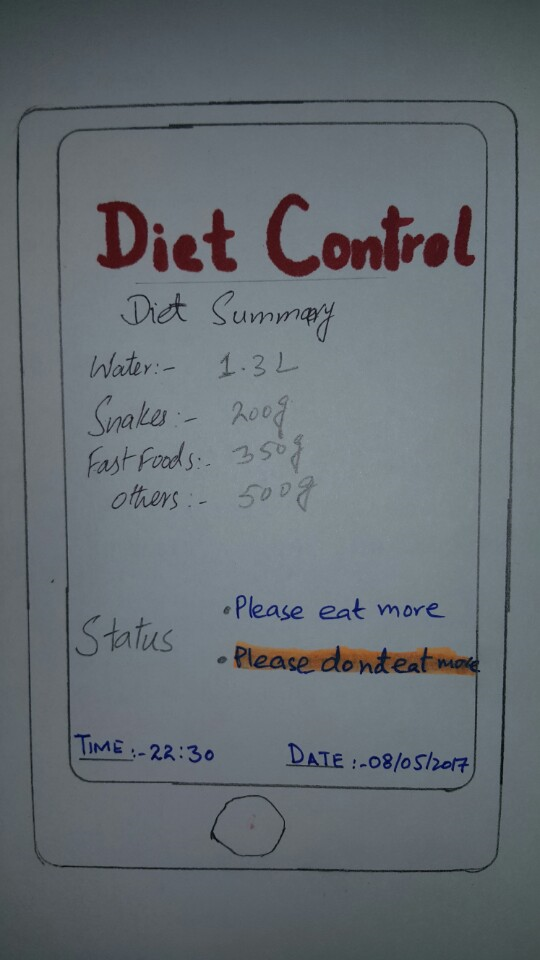 Diet Control
Diet Summary
Water:- 1.3 L
Snakes:- 200g
Fast Foods:- 350g
others:- 500g
• Please eat more
Status
• Please do not eat more
TIME:-22:30 DATE:-08/05/2017